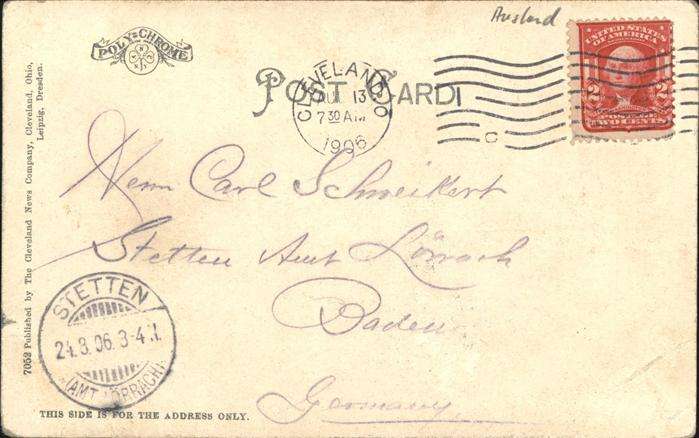 Ausland
POLY-CHROME
POST CARD
CLEVELAND, O
13
7 30 AM
1906
C
UNITED STATES OF AMERICA
2 2
TWO CENTS
Herrn Carl Schweikert
Stetten Amt Lörrach
Baden
Germany
STETTEN
24.8.06.3-4.N.
(AMT LÖRRACH)
7052 Published by The Cleveland News Company, Cleveland, Ohio,
Leipzig, Dresden.
THIS SIDE IS FOR THE ADDRESS ONLY.